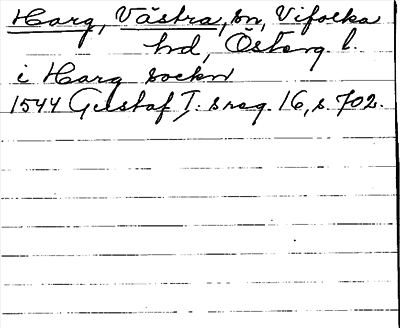 Harg, Västra, sn, Vifolka
hd, Österg. l.
i Harg sockn
1544 Gustaf I:s reg. 16, s. 702.